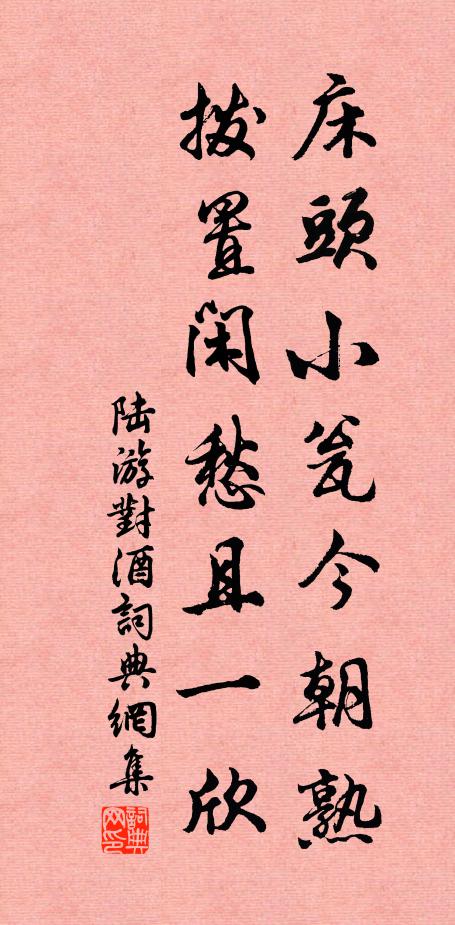 床頭小瓮今朝熟
撥置閑愁且一欣
陆游對酒詞典網集
詞典网印